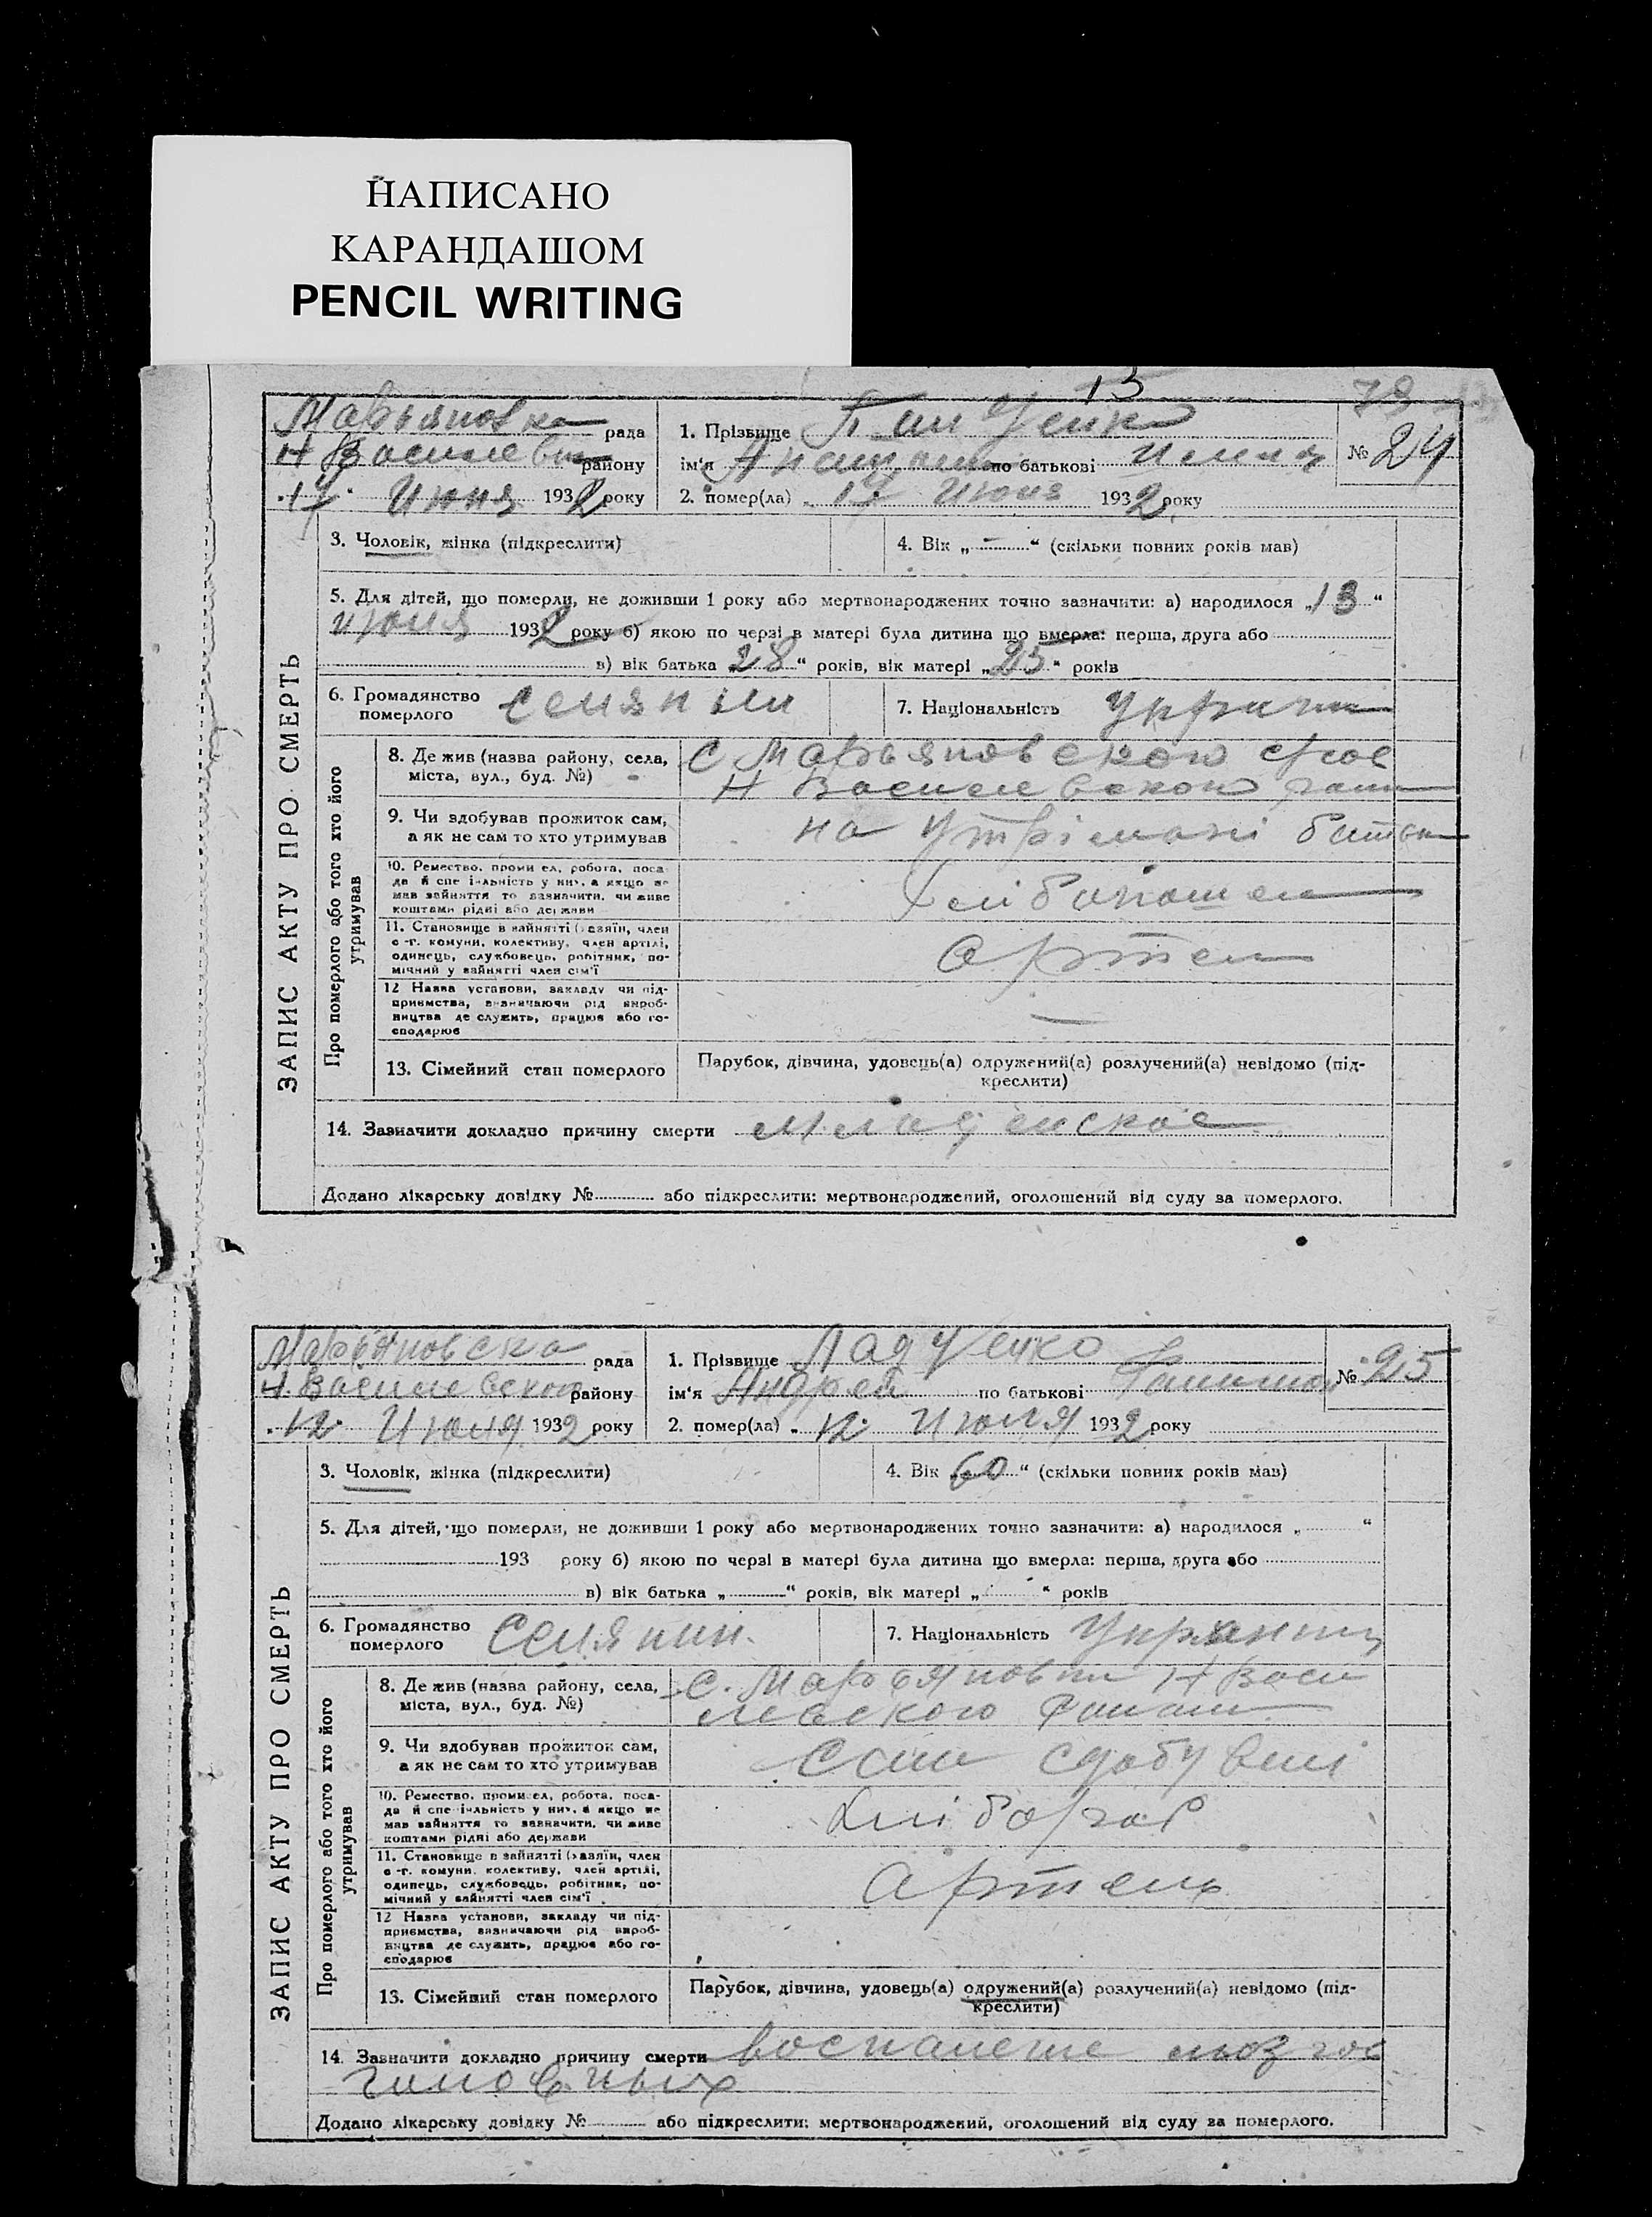 НАПИСАНО
КАРАНДАШОМ
PENCIL WRITING
13
79
Марьяновка рада
1. Прізвище
№ 24
Н Василевск району
ім'я по батькові
17 Июня 1932 року
2. помер(ла) 17 Июня 1932 року
ЗАПИС АКТУ ПРО СМЕРТЬ
3. Чоловік, жінка (підкреслити)
4. Вік „ - “ (скільки повних років мав)
5. Для дітей, що померли, не доживши 1 року або мертвонароджених точно зазначити: а) народилося „13“
июня 1932 року б) якою по черзі в матері була дитина що вмерла: перша, друга або
в) вік батька „28“ років, вік матері „25“ років
6. Громадянство померлого Селянин
7. Національність
Про померлого або того хто його утримував
8. Де жив (назва району, села,
міста, вул., буд. №)
С Марьяновской
Н Василевской
9. Чи здобував прожиток сам,
а як не сам то хто утримував
на утрімані батьк
10. Ремество, промисел, робота, поса-
да й спеціяльність у них, а якщо не
мав зайняття то зазначити, чи живе
коштами рідні або держави
11. Становище в зайнятті (хазяїн, член
с.-г. комуни, колективу, член артілі,
одинець, службовець, робітник, по-
мічний у зайнятті член сім'ї
Артел
12 Назва установи, закладу чи під-
приємства, визначаючи рід вироб-
ництва де служить, працює або го-
сподарює
13. Сімейний стан померлого
Парубок, дівчина, удовець(а) одружений(а) розлучений(а) невідомо (під-
креслити)
14. Зазначити докладно причину смерти Младенское
Додано лікарську довідку № або підкреслити: мертвонароджений, оголошений від суду за померлого.
Марьяновска рада
1. Прізвище Ладученко
№ 25
Н. Василевской району
ім'я Андрей по батькові
12 Июля 1932 року
2. помер(ла) 12 Июля 1932 року
ЗАПИС АКТУ ПРО СМЕРТЬ
3. Чоловік, жінка (підкреслити)
4. Вік „60“ (скільки повних років мав)
5. Для дітей, що померли, не доживши 1 року або мертвонароджених точно зазначити: а) народилося „ “
193 року б) якою по черзі в матері була дитина що вмерла: перша, друга або
в) вік батька „ “ років, вік матері „ “ років
6. Громадянство померлого Селянин.
7. Національність Украинец
Про померлого або того хто його утримував
8. Де жив (назва району, села,
міста, вул., буд. №)
С. Марьяновки Н Васи
левского
9. Чи здобував прожиток сам,
а як не сам то хто утримував
Сам
10. Ремество, промисел, робота, поса-
да й спеціяльність у них, а якщо не
мав зайняття то зазначити, чи живе
коштами рідні або держави
Хлібороб
11. Становище в зайнятті (хазяїн, член
с.-г. комуни, колективу, член артілі,
одинець, службовець, робітник, по-
мічний у зайнятті член сім'ї
Артель
12 Назва установи, закладу чи під-
приємства, визначаючи рід вироб-
ництва де служить, працює або го-
сподарює
13. Сімейний стан померлого
Парубок, дівчина, удовець(а) одружений(а) розлучений(а) невідомо (під-
креслити)
14. Зазначити докладно причину смерти воспаление мозгов
головных
Додано лікарську довідку № або підкреслити: мертвонароджений, оголошений від суду за померлого.